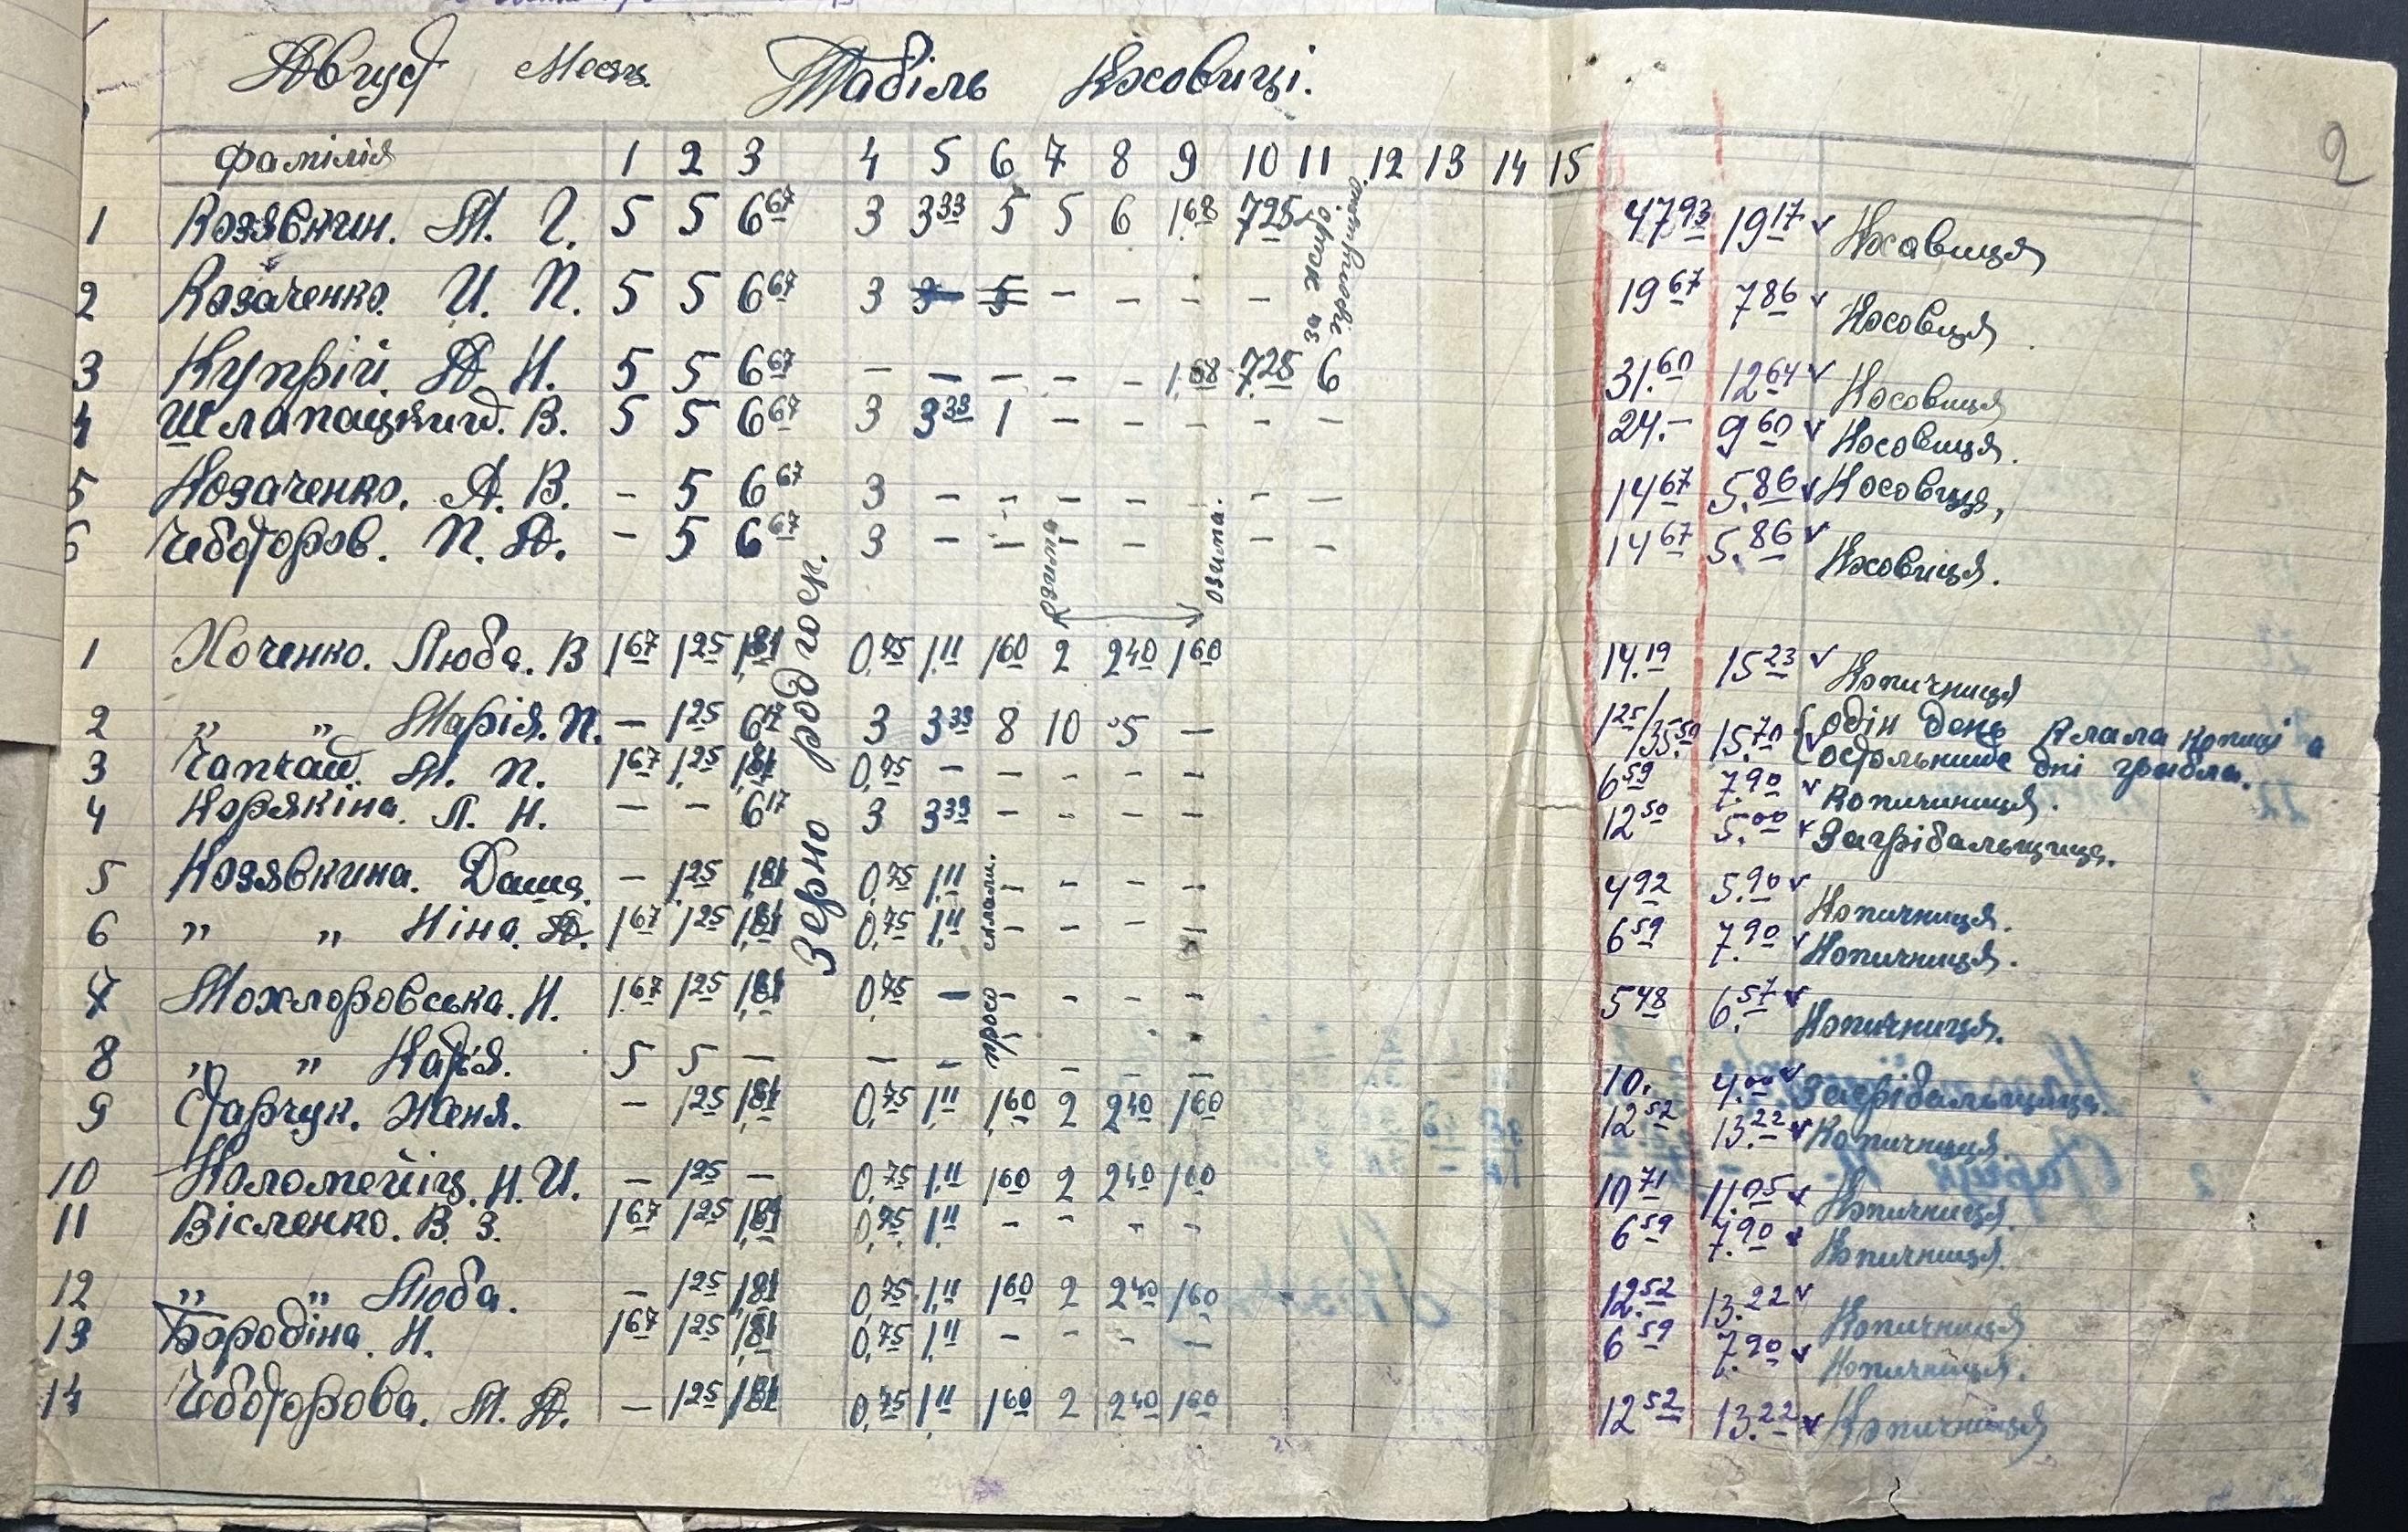 Август Месяц. Табіль Косовиці.
2
Фамілія 1 2 3 4 5 6 7 8 9 10 11 12 13 14 15
1 Козявкин. М. Г. 5 5 6 67 3 3 33 5 5 6 1.68 7 25 47 93 19 17 Косавиця
2 Козаченко. И. П. 5 5 6 67 3 3 5 - - - - 19 67 7 86 Косовиця
3 Купрій А Н. 5 5 6 67 - - - - - 1.68 7 25 6 31.60 12 64 Косовиця
4 В. 5 5 6 67 3 3 33 1 - - - - - 24.- 9 60 Косовиця.
5 Козаченко. А. В. - 5 6 67 3 - - - - - - 14 67 5.86 Косовиця,
6 Чеботоров. П. А. - 5 6 67 3 - - - - - - 14 67 5.86 Косовиця.
озима.
Зерно род госп.
1 Хоченко. Люба. В 1 67 1 25 1,81 0,75 1.11 1 60 2 2 40 1 60 14.19 15 23 Копичниця
2 „ „ Марія. П. - 1 25 6 17 3 3 33 8 10 5 - 1 25/35.50 15.70 { один день клала копиці а
остольниє дні грибла.
3 Чапчай. М. П. 1 67 1,25 1,81 0,75 - - - - - 6 59 7.90 Копичниця.
4 Корякіна. Л. Н. - - 6 17 3 3 33 - - - - 12 50 5.00 Загрібальщиця.
5 Козявкина. Даша. - 1 25 1,81 0,75 1.11 - - - - 4 92 5.90 Копичниця.
6 „ „ Ніна. А. 1 67 1 25 1,81 0,75 1.11 - - - - 6 59 7.90 Копичниця.
просо склали.
7 Н. 1.67 1 25 1,81 0,75 - - - - - 5 48 6.57 Копичниця.
8 „ „ 5 5 - - - - - - 10. 4.00 Загрібальщиця.
9 Старчук. Женя. - 1 25 1,81 0,75 1.11 1,60 2 2 40 1 60 12 52 13.22 Копичниця.
10 Коломейіц. Н. И. - 1 25 - 0,75 1.11 1 60 2 2 40 1 60 10 71 11.05 Копичниця.
11 Вісленко. В. З. 1 67 1 25 1,81 0,75 1.11 - - - - 6 59 7.90 Копичниця.
12 „ „ Люба. - 1 25 1,81 0,75 1.11 1 60 2 2 40 1 60 12.52 13.22 Копичниця
13 Бородіна. Н. 1 67 1 25 1,81 0,75 1.11 - - - - 6 59 7.90 Копичниця.
14 Чеботорова. М. А. - 1 25 1,81 0,75 1.11 1 60 2 2 40 1 60 12 52 13.22 Копичниця